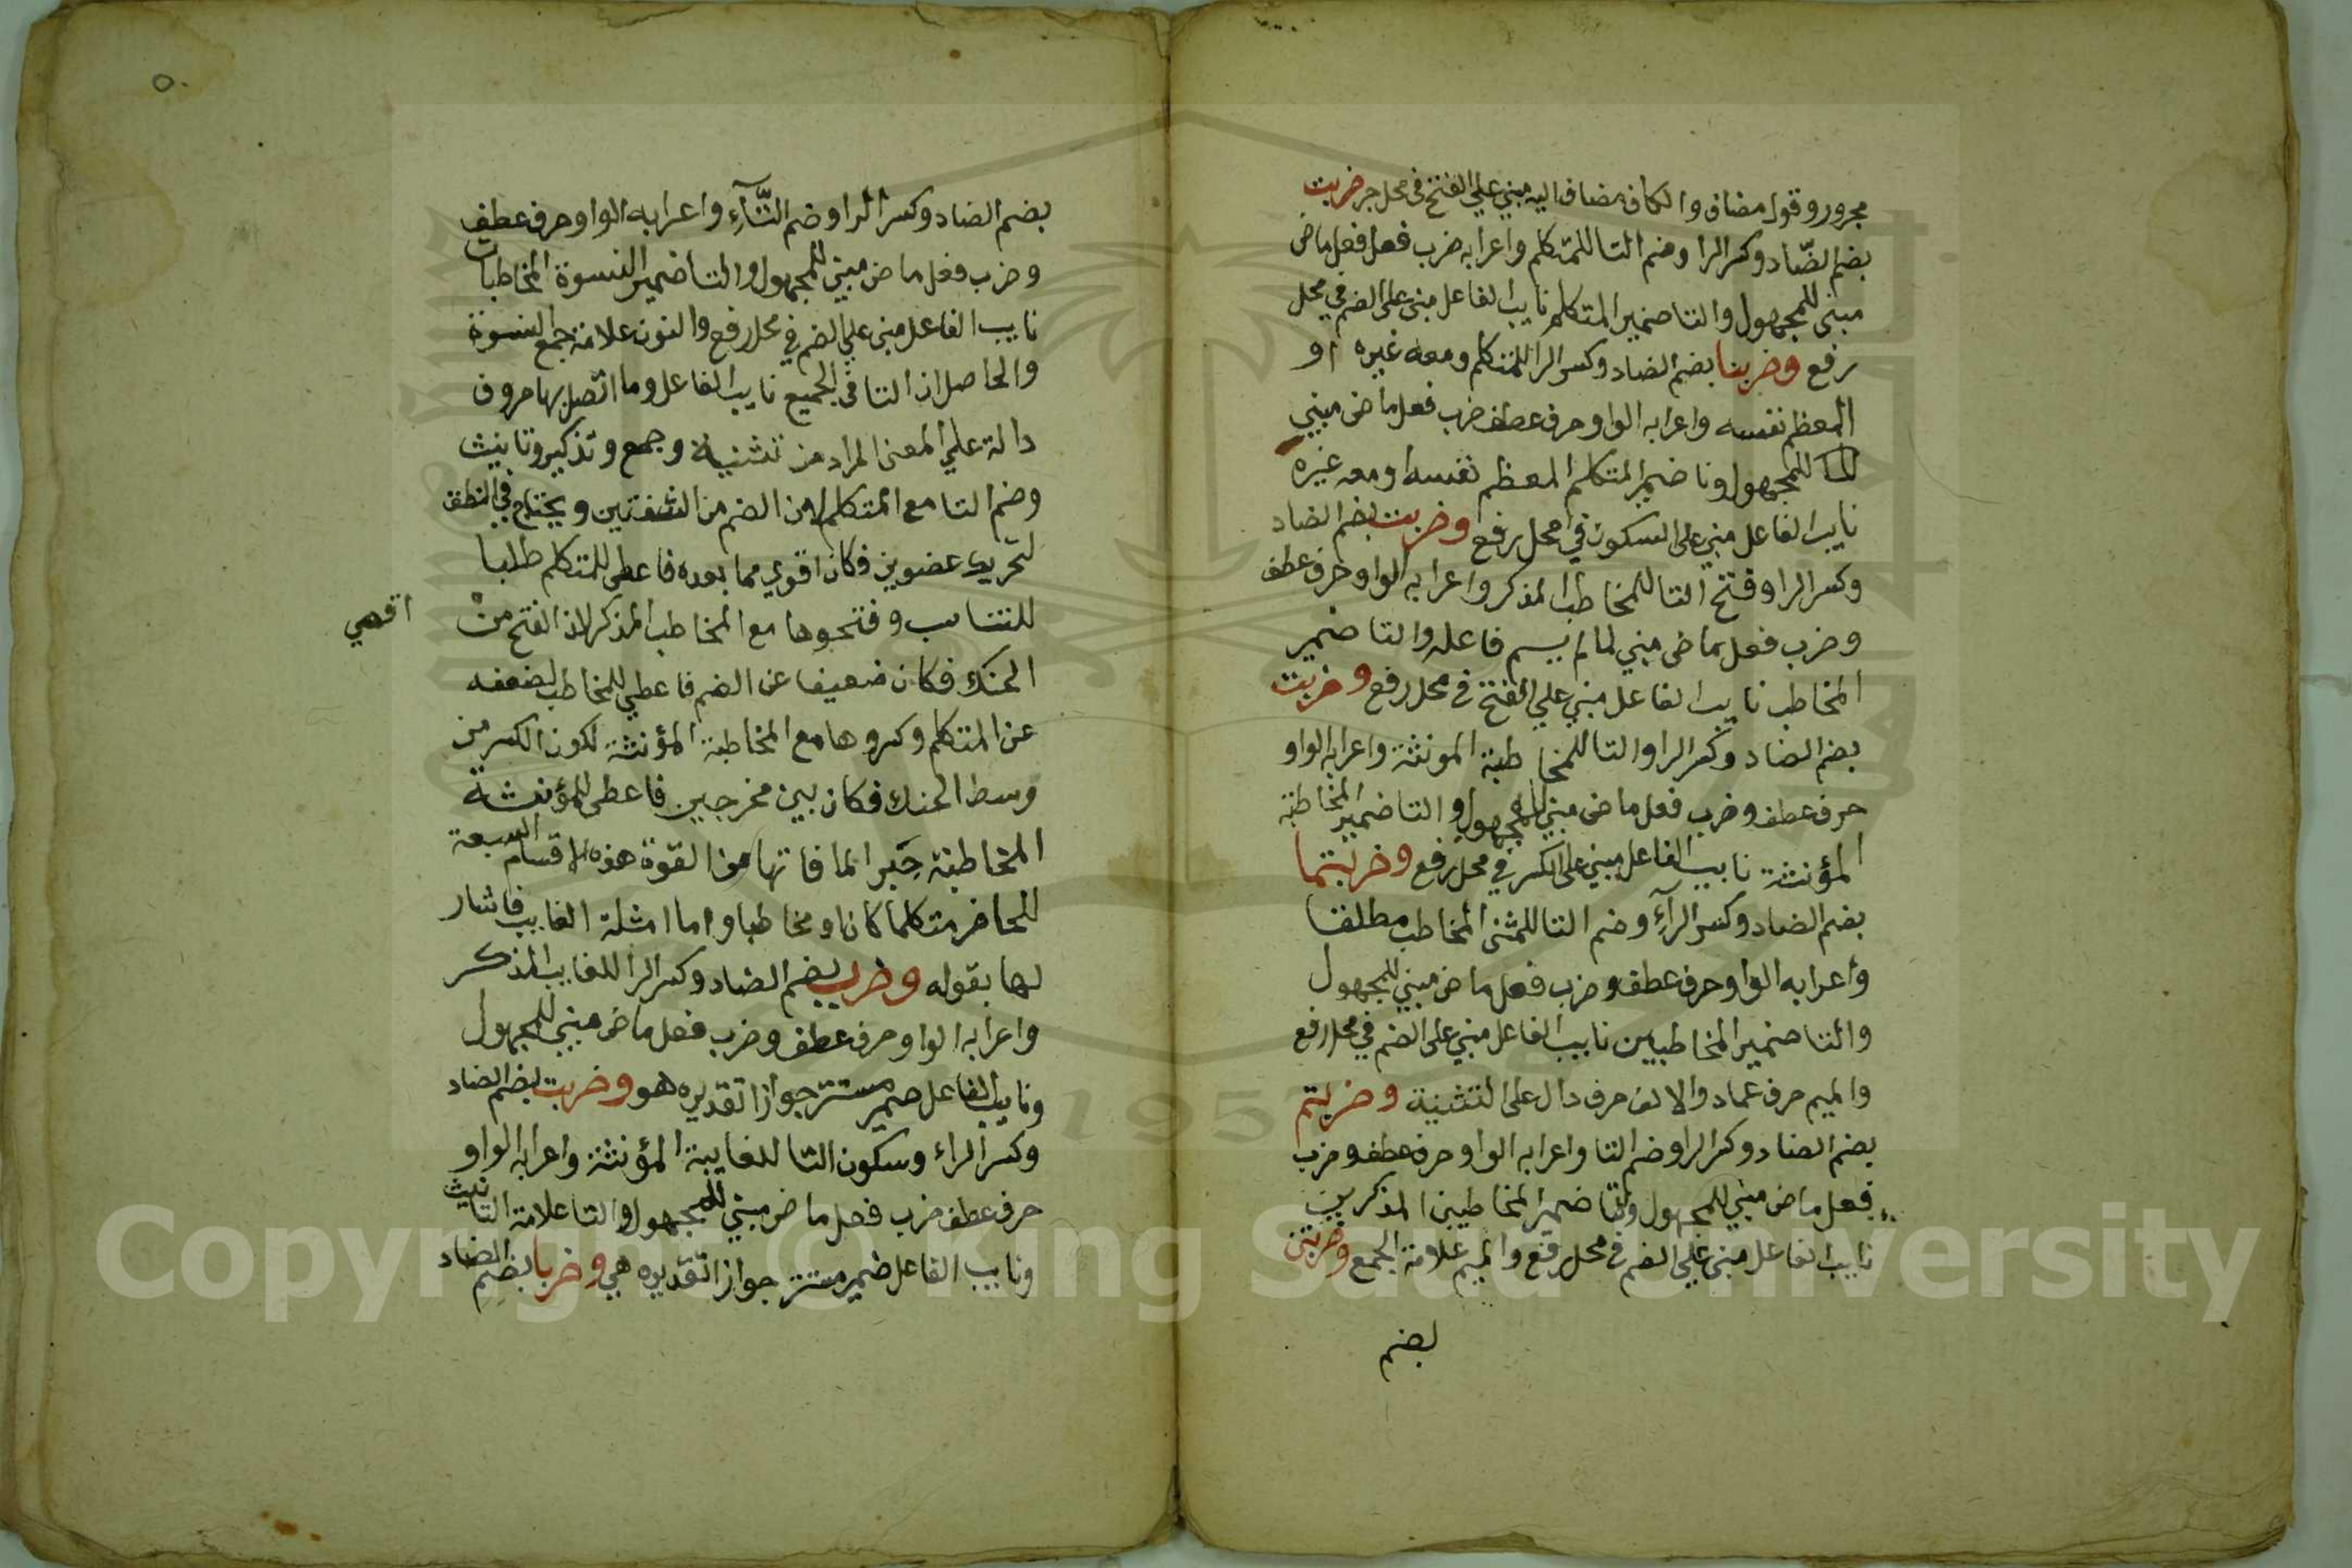 مجرور وقول مضاف والكاف مضاف اليه مبني علي الفتح في محل جر ضربت
بضم الضّاد وكسر الرا وضم التا للمتكلم واعرابه ضرب فعل فعل ماض
مبني للمجهول والتا ضمير المتكلم نايب الفاعل مبني على الضم في محل
رفع وضربنا بضم الضاد وكسر الرا للمتكلم ومعه غيره او
المعظم نفسه واعرابه الواو حرف عطف ضرب فعل ماض مبني
للمجهول ونا ضمير المتكلم المعظم نفسه او معه غيره
نايب الفاعل مبني على السكون في محل رفع وضربت بضم الضاد
وكسر الرا وفتح التا للمخاطب المذكر واعرابه الواو حرف عطف
وضرب فعل ماض مبني لما لم يسم فاعله والتا ضمير
المخاطب نايب الفاعل مبني علي الفتح في محل رفع وضربت
بضم الضاد وكسر الرا والتا للمخاطبة المونثة واعرابه الواو
حرف عطف وضرب فعل ماض مبني للمجهول والتا ضمير المخاطبة
المؤنثة نايب الفاعل مبني على الكسر في محل رفع وضربتما
بضم الضاد وكسر الرآءِ وضم التا للمثنى المخاطب مطلقا
واعرابه الواو حرف عطف وضرب فعل ماض مبني للمجهول
والتا ضمير المخاطبين نايب الفاعل مبني على الضم في محل رفع
والميم حرف عماد والالف حرف دال على التثنية وضربتم
بضم الضاد وكسر الرا وضم التا واعرابه الواو حرف عطف وضرب
فعل ماض مبني للمجهول والتا ضمير المخاطبين المذكرين
نايب الفاعل مبني علي الضم في محل رفع والميم علامة الجمع وضربتن
بضم
٥٠
بضم الضاد وكسر الرا وضم التَّآءِ واعرابه الواو حرف عطف
وضرب فعل ماض مبني للمجهول والتا ضمير النسوة المخاطبات
نايب الفاعل مبني علي الضم في محل رفع والنون علامة جمع النسوة
والحاصل ان التا في الجميع نايب الفاعل وما اتصل بها حروف
دالة علي المعنى المراد من تثنية وجمع وتذكير وتانيث
وضم التا مع المتكلم لان الضم من الشفتين ويحتاج في النطق
لتحريك عضوين فكان اقوي مما بعده فاعطي للمتكلم طلبا
للتناسب وفتحوها مع المخاطب المذكر لان الفتح من
اقصي
الحنك فكان ضعيفا عن الضم فاعطي للمخاطب لضعفه
عن المتكلم وكسروها مع المخاطبة المؤنثة لكون الكسر من
وسط الحنك فكان بين مخرجين فاعطي للمؤنثة
المخاطبة جَبرا لما فاتها من القوة هذه الاقسام السبعة
للحاضر متكلما كان او مخاطبا واما امثلة الغايب فاشار
لها بقوله وضرب بضم الضاد وكسر الرا للغايب المذكر
واعرابه الواو حرف عطف وضرب فعل ماض مبني للمجهول
ونايب الفاعل ضمير مستتر جوازا تقديره هو وضربت بضم الضاد
وكسر الراء وسكون التا للغايبة المؤنثة واعرابه الواو
حرف عطف ضرب فعل ماض مبني للمجهول والتا علامة التانيث
ونايب الفاعل ضمير مستتر جوازا تقديره هي وضربا بضم الضاد
1957
Copyright © King Saud University